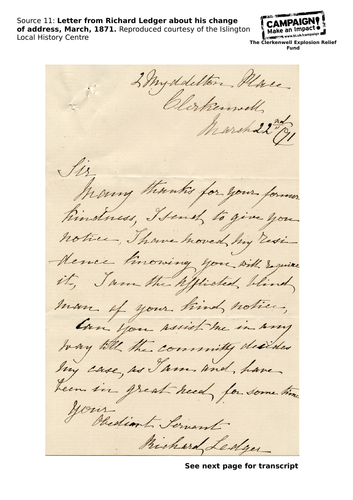 Source 11: Letter from Richard Ledger about his change
of address, March, 1871. Reproduced courtesy of the Islington
Local History Centre
CAMPAIGN!
Make an Impact
www.bl.uk/campaign
The Clerkenwell Explosion Relief
Fund
2 Myddelton Place
Clerkenwell
March 22nd /71
Sir
Many thanks for your former
kindness, I send to give you
notice, I have moved my resi
dence knowing you with require
it, I am the afflicted, blind
man of your kind notice,
Can you assist me in any
way till the committy decides
my case, as I am and, have
been in great need, for some time
Your
Obediant Servant
Richard Ledger
See next page for transcript